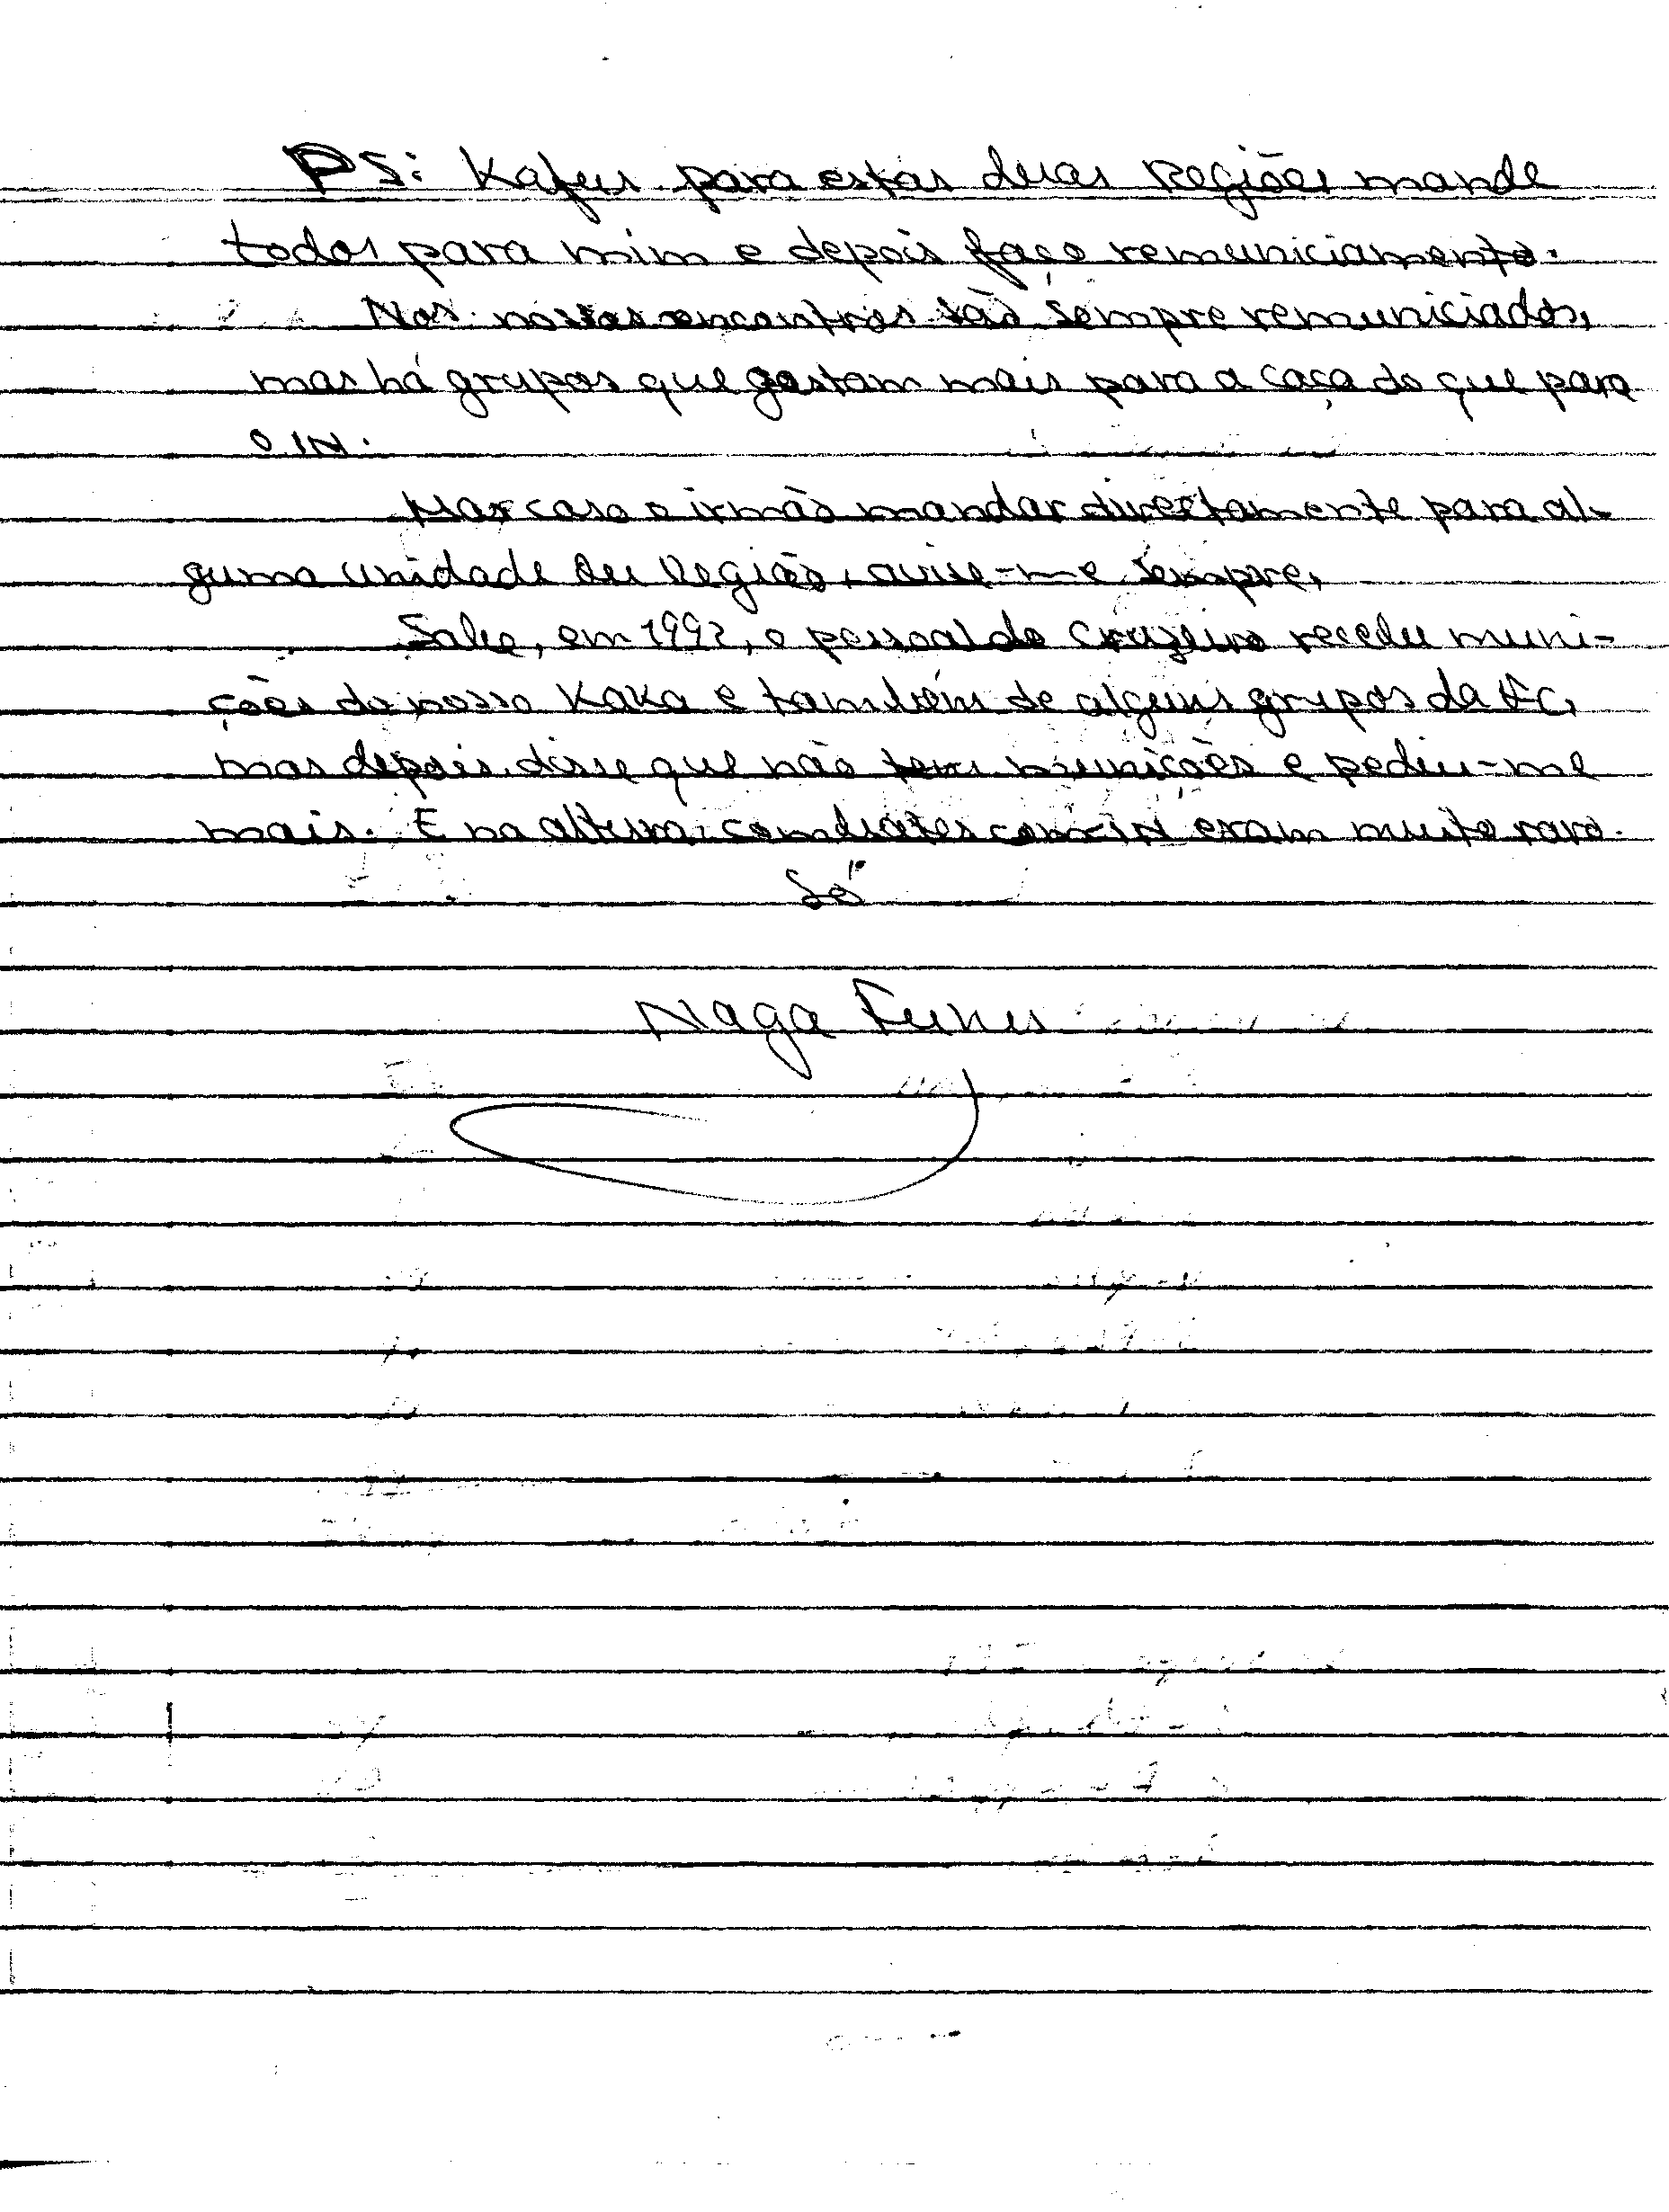 PS: Kafus para estas duas Regiões mande
todos para mim e depois faço remuniciamento.
Nos nossos encontros são sempre remuniciados,
mas há grupos que gastam mais para a caça do que para
o IN.
Mas caso o irmão mandar directamente para al-
guma unidade ou Região, avise-me sempre,
Sabe, em 1992, o pessoal do Cruzeiro recebu muni-
ções do nosso Kaka e também de alguns grupos da FC,
mas depois disse que não tem munições e pediu-me
mais. E na altura combates com IN eram muito raro.
Só
Naga Funus